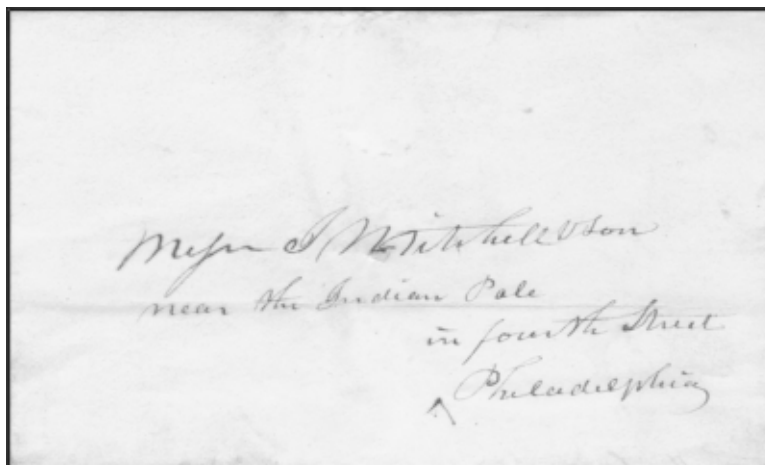 Messrs J Mitchell & Son
near the Indian Pole
in fourth Street
Philadelphia